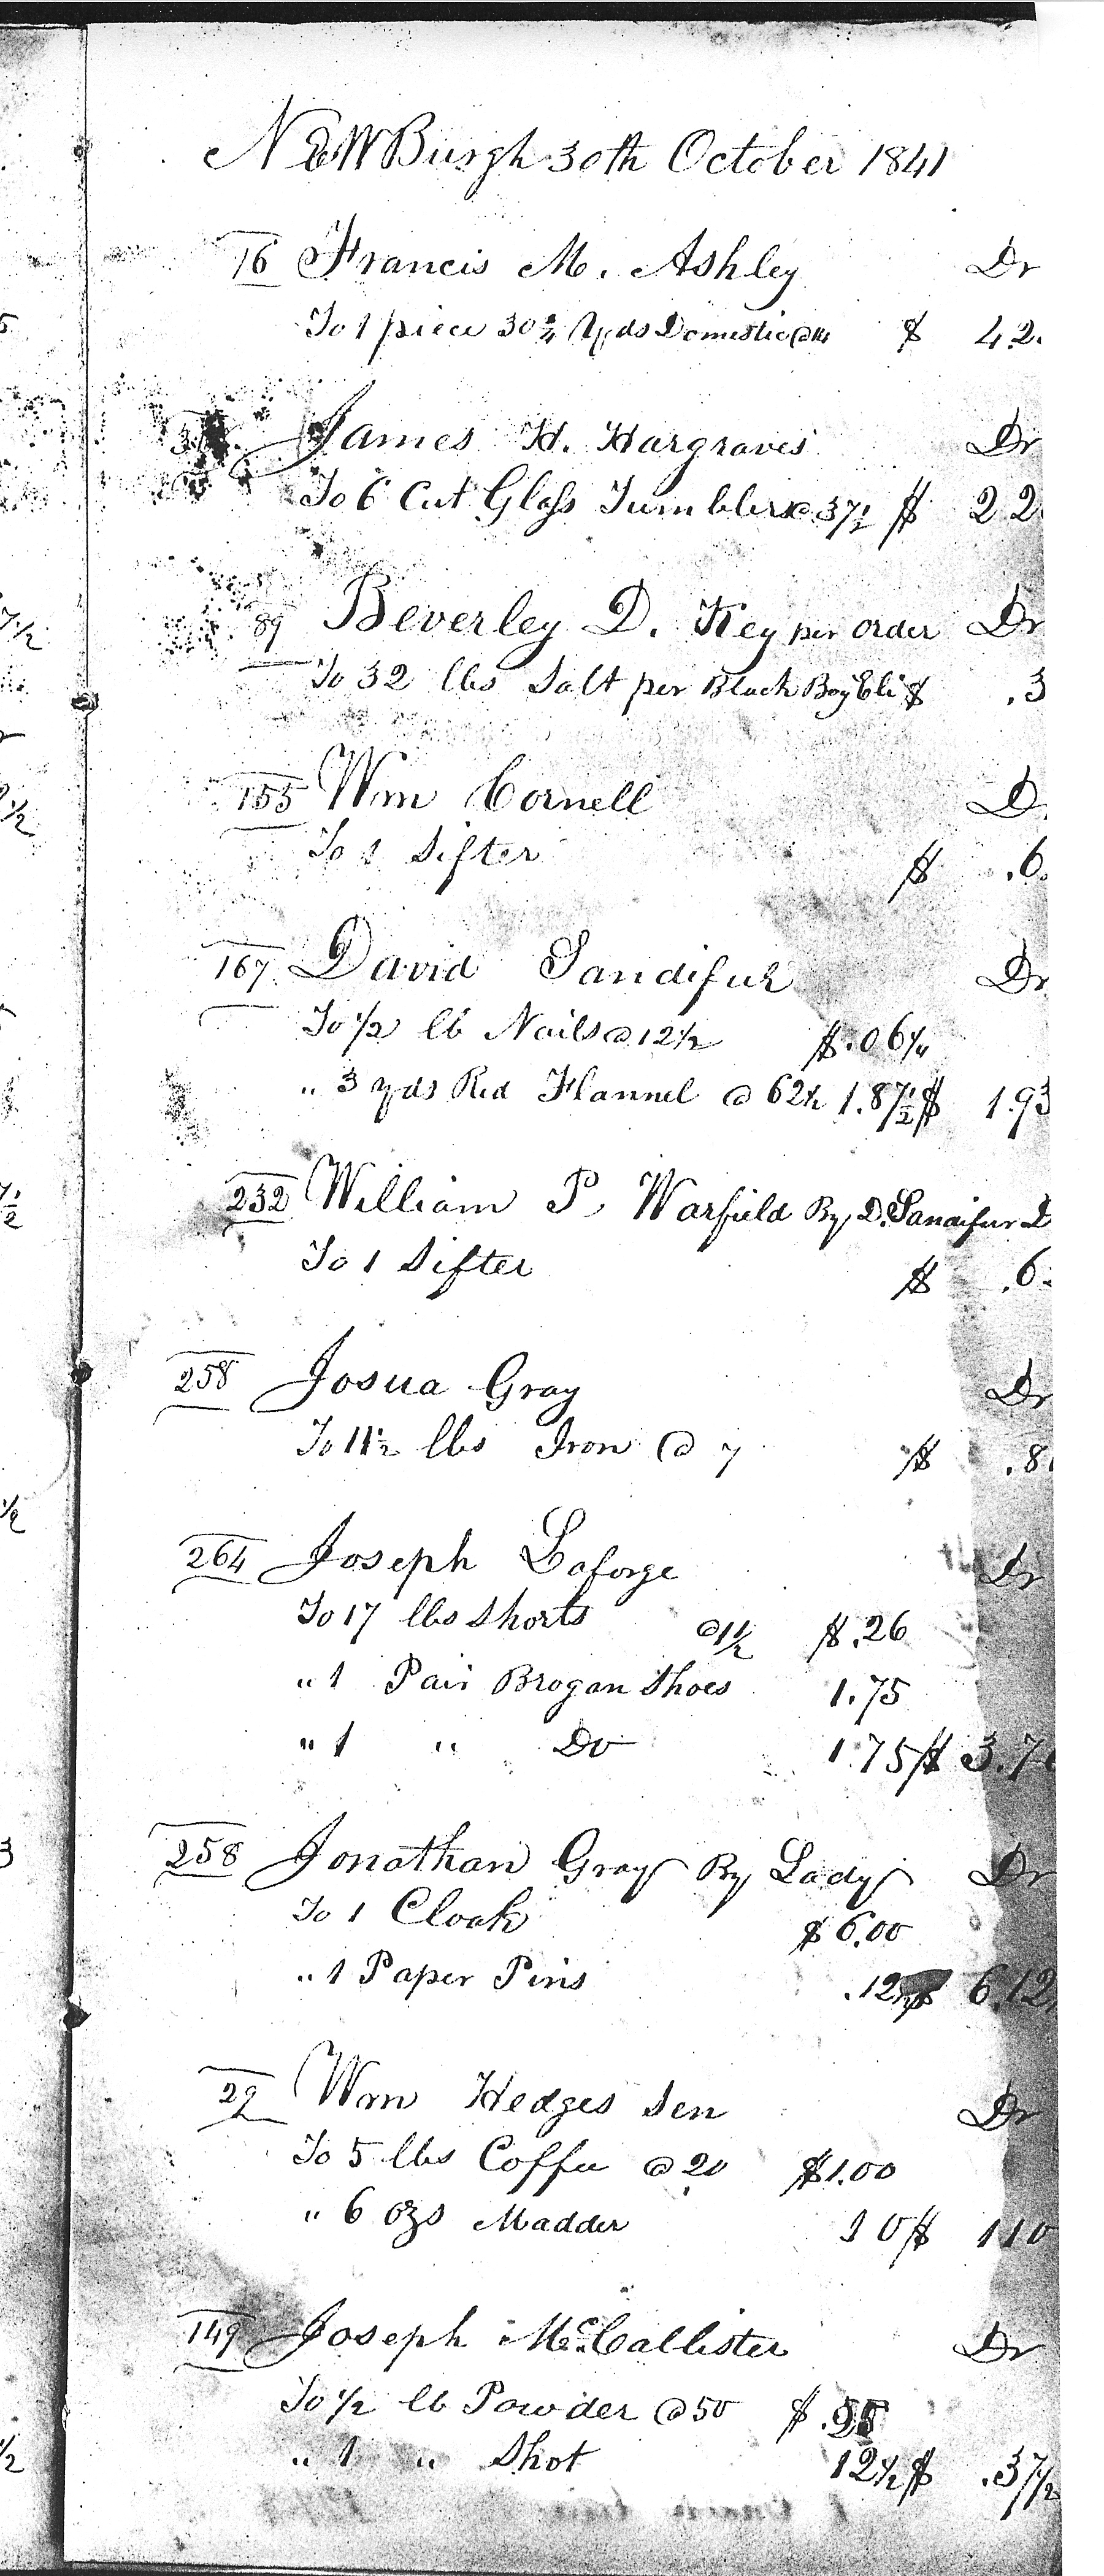 NEWBurgh 30th October 1841
16 Francis M. Ashley Dr
To 1 piece 30 3/4 Yds Domestic @ 14 $ 4 2
James H. Hargraves Dr
To 6 Cut Glass Tumblers @ 37½ $ 2 2
89 Beverley D. Key per order Dr
To 32 lbs Salt per Black Boy Eli $ .3
155 Wm Cornell D
To 1 Sifter $ .6
167 David Sandifur Dr
To ½ lb Nails @ 12½ $.06¼
" 3 yds Red Flannel @ 62½ 1.87½ $ 1.93
232 William P. Warfield By D. Sandifur D
To 1 Sifter $ .6
258 Josua Gray Dr
To 11½ lbs Iron @ 7 $ .8
264 Joseph Laforge Dr
To 17 lbs Shorts @ 1½ $.26
" 1 Pair Brogan Shoes 1.75
" 1 " Do 1.75 $ 3.7
258 Jonathan Gray By Lady Dr
To 1 Cloak $ 6.00
" 1 Paper Pins .12½ $ 6.12
29 Wm Hedges Sen Dr
To 5 lbs Coffee @ 20 $1.00
" 6 ozs Madder 10 $ 1 10
149 Joseph McCallister Dr
To ½ lb Powder @ 50 $ .25
" 1 " Shot 12½ $ .37½